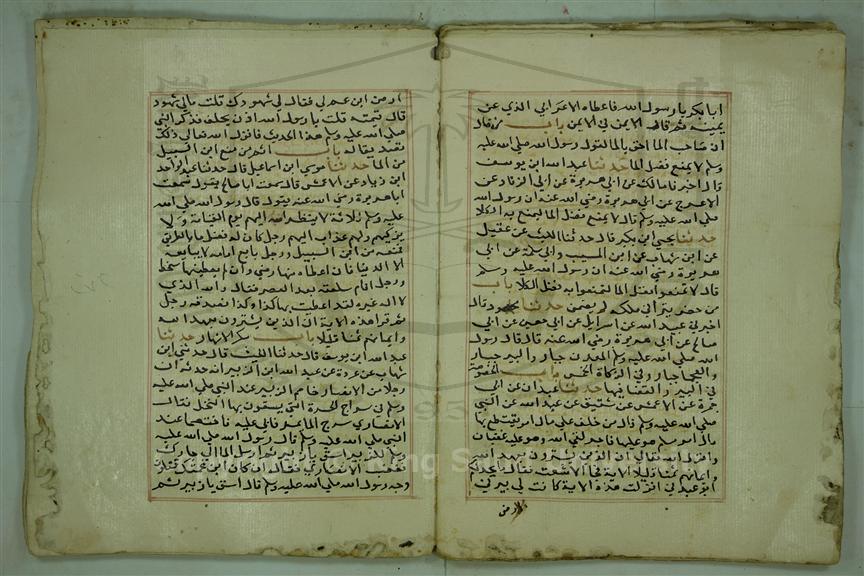 ابا بكر يا رسول الله فاعطاه الاعرابي الذي عن
يمينه ثم قال الايمن فالايمن باب من قال
ان صاحب الما احق بالما لقول رسول الله صلي الله عليه
وسلم لا يمنع فضل الما حدثنا عبد الله ابن يوسف
قال اخبرنا مالك عن ابي الزناد عن
الاعرج عن ابي هريرة رضي الله عنه ان رسول الله
صلي الله عليه وسلم قال لا يمنع فضل الما ليمنع به الكلا
حدثنا يحيي ابن بكير قال حدثنا الليث عن عقيل
عن ابن شهاب عن ابن المسيب وابي سلمة عن ابي
هريرة رضي الله عنه ان رسول الله عليه وسلم
قال لا تمنعوا فضل الما لتمنعوا به فضل الكلا باب
من حفر بيرا في ملكه لم يضمن حدثنا محمود قال
اخبرني عبد الله عن اسرايل عن ابي حصين عن ابي
صالح عن ابي هريرة رضي الله عنه قال قال رسول
الله صلي الله عليه وسلم المعدن جبار والبير جبار
والعجما جبار وفي الركاة الخمس باب الخصومة
في البير والقضا فيها حدثنا عبدان عن ابي
حمزة عن الاعمش عن شقيق عن عبد الله عن النبي
صلي الله عليه وسلم قال من حلف علي مال امرئ يقتطع بها
مال امرء مسلم هو عليها فاجر لقي الله وهو عليه غضبان
وانزل الله تعالي ان الذين يشترون بعهد الله
وايمانهم ثمنا قليلا الاية فجا الاشعث فقال ما حدثكم
ابو عبد في انزلت هذه الاية كانت لي بير في
ارض من
ارض من ابن عم لي فقال لي شهودك قلت مالي شهود
قال فيمينه قلت يا رسول الله اذن يحلف فذكر النبي
صلي الله عليه وسلم هذا الحديث فانزل الله تعالي ذلك
تصديقا له باب اثم من منع ابن السبيل
من الما حدثنا موسي ابن اسماعيل قال حدثنا عبد الواحد
ابن زياد عن الاعمش قال سمعت ابا صالح يقول سمعت
ابا هريرة رضي الله عنه يقول قال رسول الله صلي الله
عليه وسلم ثلاثة لا ينظر الله اليهم يوم القيامة ولا
يزكيهم ولهم عذاب اليم رجل كان له فضل ما بالطريق
فمنعه من ابن السبيل ورجل بايع امامه لا يبايعه
الا لدنيا فان اعطاه منها رضي وان لم يعطه منها سخط
ورجل اقام سلعته بعد العصر فقال والله الذي
لا اله غيره لقد اعطيت بها كذا وكذا فصدقه رجل
ثم قرا هذه الاية ان الذين يشترون بعهد الله
وايمانهم ثمنا قليلا باب سكر الانهار حدثنا
عبد الله ابن يوسف قال حدثنا الليث قال حدثني ابن
شهاب عن عروة عن عبد الله ابن الزبير انه حدثه ان
رجلا من الانصار خاصم الزبير عند النبي صلي الله عليه
وسلم في شراج الحرة التي يسقون بها النخل فقال
الانصاري سرح الما يمر فابي عليه فاختصما عند
النبي صلي الله عليه وسلم قال رسول الله صلي الله عليه
وسلم للزبير اسق يا زبير ثم ارسل الما الي جارك
فغضب الانصاري فقال ان كان ابن عمتك فتلون
وجه رسول الله صلي الله عليه وسلم قال اسق يا زبير ثم